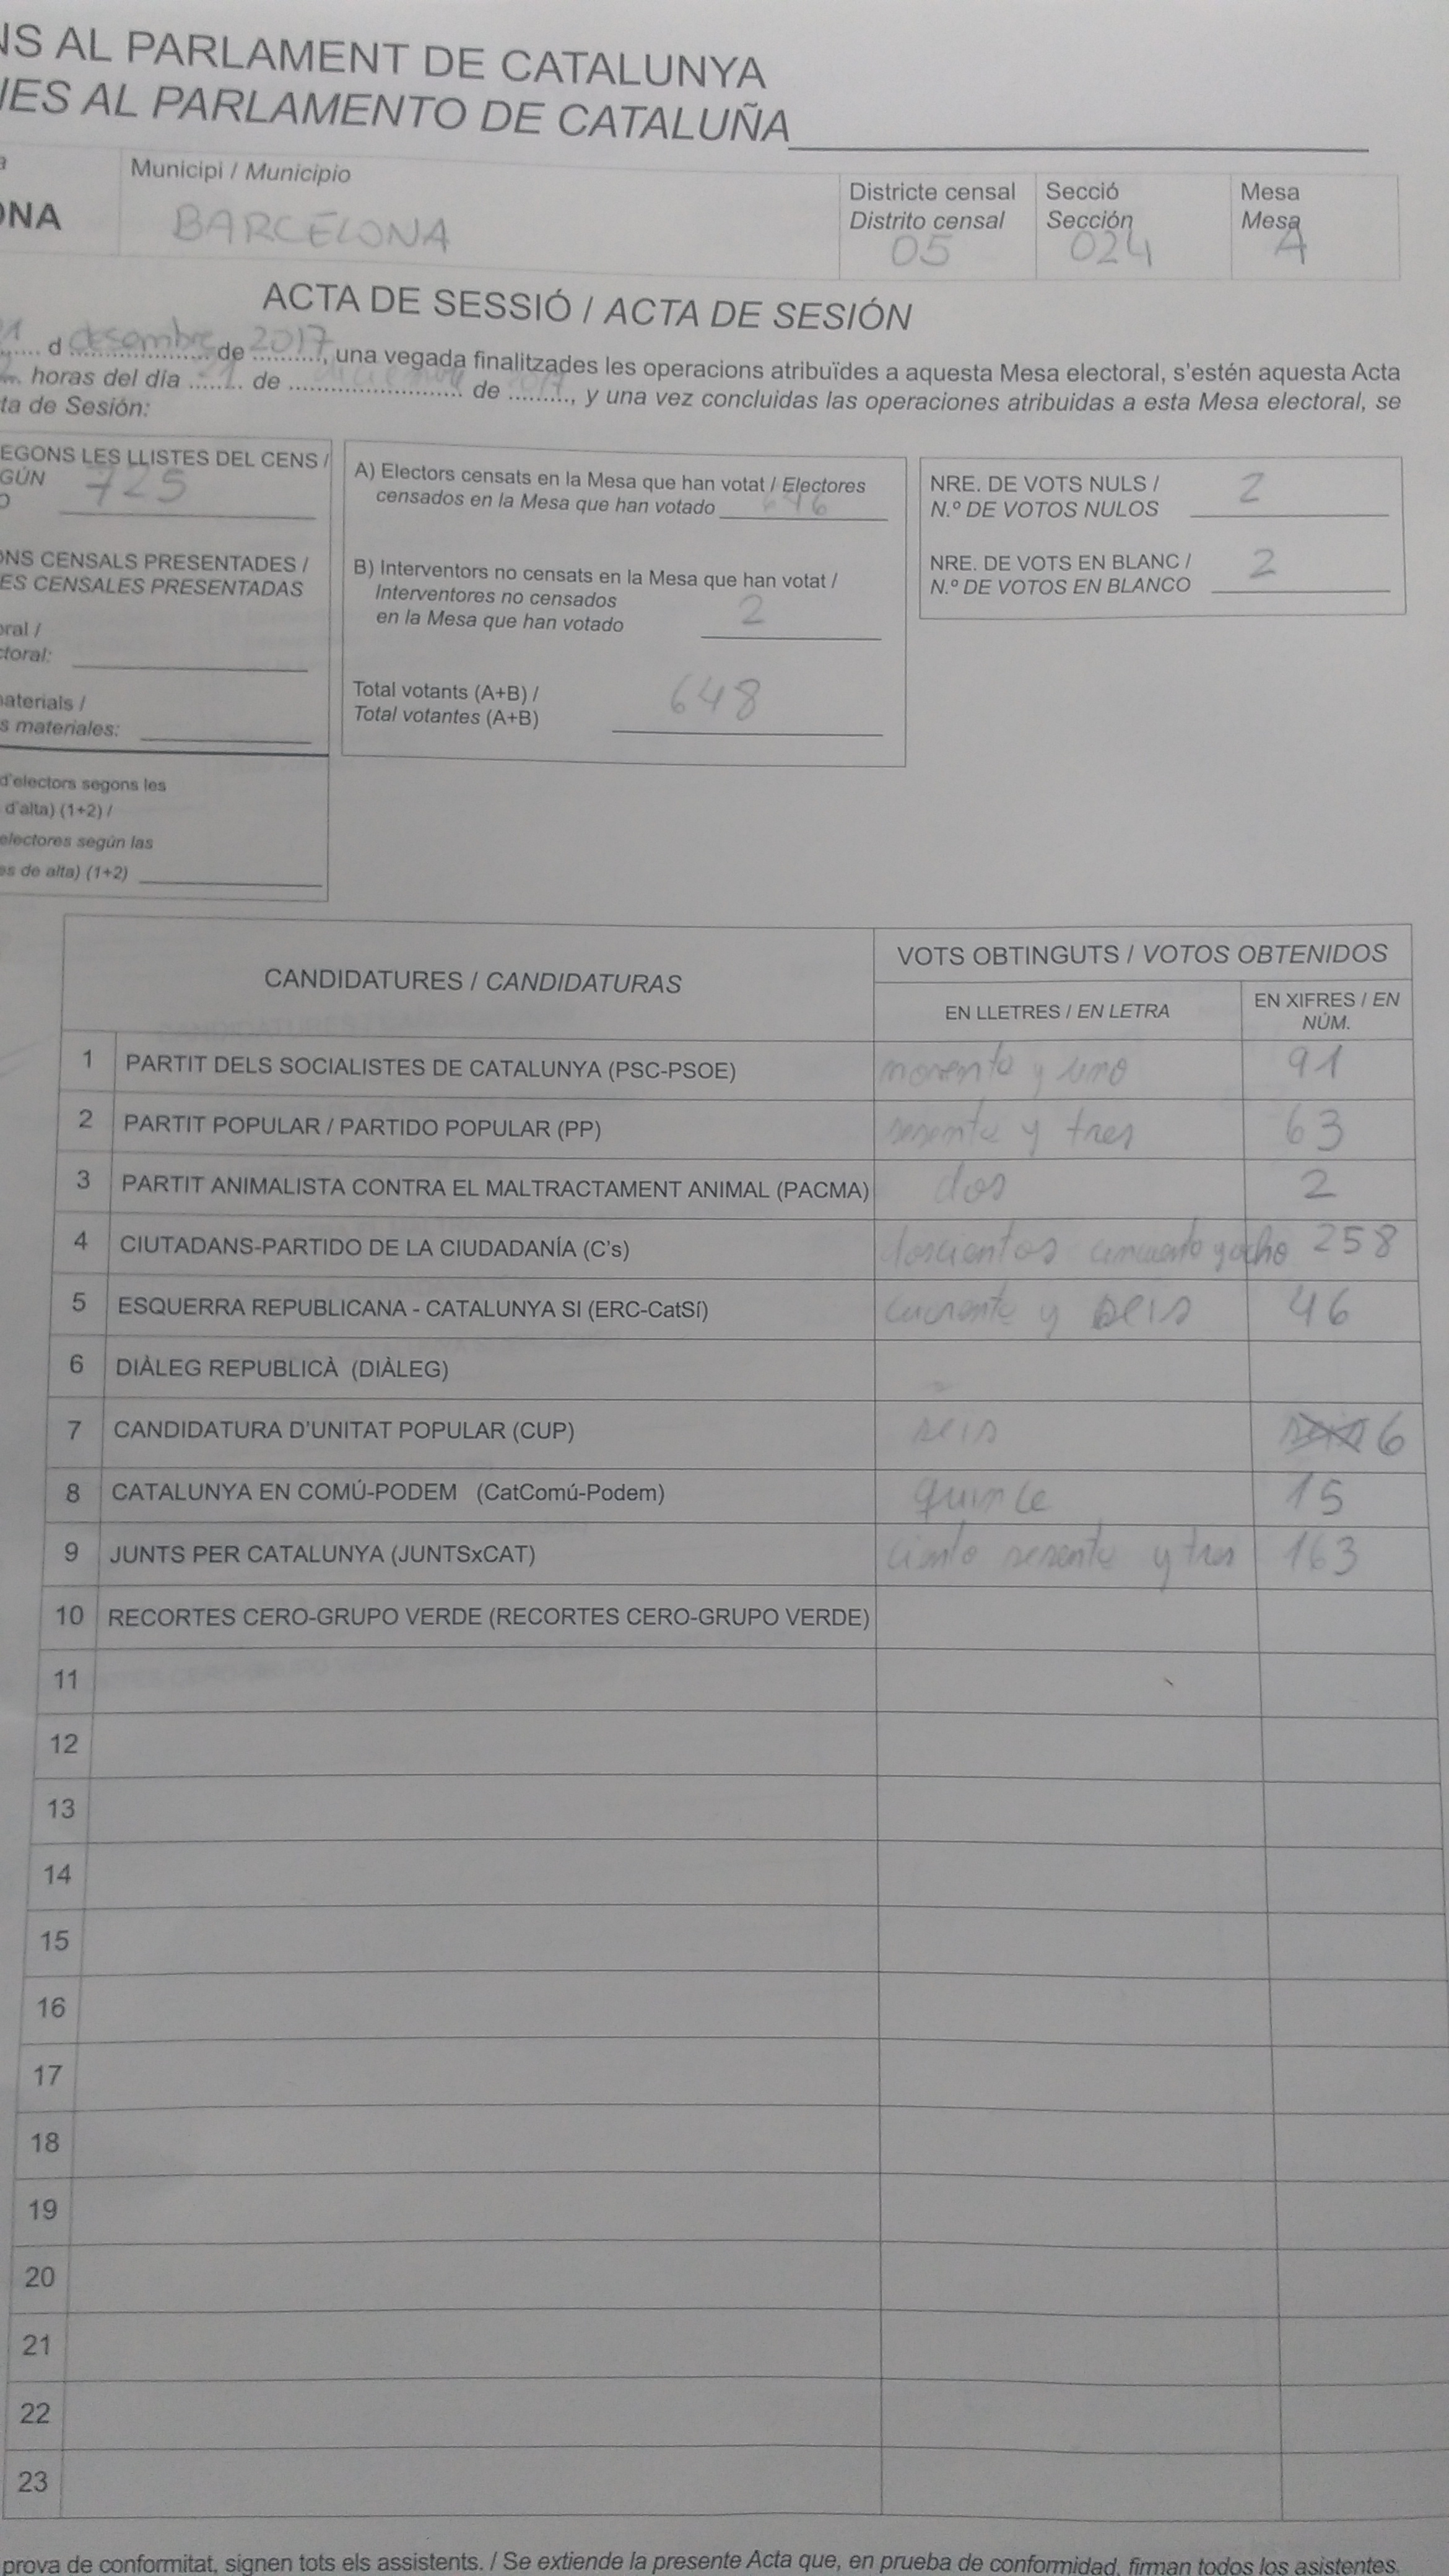 NS AL PARLAMENT DE CATALUNYA
NES AL PARLAMENTO DE CATALUÑA
a
ONA
Municipi / Municipio
BARCELONA
Districte censal
Distrito censal
05
Secció
Sección
024
Mesa
Mesa
A
ACTA DE SESSIÓ / ACTA DE SESIÓN
21 d desembre de 2017, una vegada finalitzades les operacions atribuïdes a aquesta Mesa electoral, s'estén aquesta Acta
horas del día 21 de diciembre de 2017, y una vez concluidas las operaciones atribuidas a esta Mesa electoral, se
ta de Sesión:
EGONS LES LLISTES DEL CENS /
GÚN
O 725
ONS CENSALS PRESENTADES /
ES CENSALES PRESENTADAS
oral /
ctoral:
materials /
s materiales:
d'electors segons les
d'alta) (1+2) /
electores según las
es de alta) (1+2)
A) Electors censats en la Mesa que han votat / Electores
censados en la Mesa que han votado 646
B) Interventors no censats en la Mesa que han votat /
Interventores no censados
en la Mesa que han votado 2
Total votants (A+B) /
Total votantes (A+B) 648
NRE. DE VOTS NULS /
N.º DE VOTOS NULOS 2
NRE. DE VOTS EN BLANC /
N.º DE VOTOS EN BLANCO 2
CANDIDATURES / CANDIDATURAS
VOTS OBTINGUTS / VOTOS OBTENIDOS
EN LLETRES / EN LETRA
EN XIFRES / EN
NÚM.
1 PARTIT DELS SOCIALISTES DE CATALUNYA (PSC-PSOE) noventa y uno 91
2 PARTIT POPULAR / PARTIDO POPULAR (PP) sesenta y tres 63
3 PARTIT ANIMALISTA CONTRA EL MALTRACTAMENT ANIMAL (PACMA) dos 2
4 CIUTADANS-PARTIDO DE LA CIUDADANÍA (C's) doscientos cincuenta y ocho 258
5 ESQUERRA REPUBLICANA - CATALUNYA SI (ERC-CatSí) cuarenta y seis 46
6 DIÀLEG REPUBLICÀ (DIÀLEG)
7 CANDIDATURA D'UNITAT POPULAR (CUP) seis 6
8 CATALUNYA EN COMÚ-PODEM (CatComú-Podem) quince 15
9 JUNTS PER CATALUNYA (JUNTSxCAT) ciento sesenta y tres 163
10 RECORTES CERO-GRUPO VERDE (RECORTES CERO-GRUPO VERDE)
11
12
13
14
15
16
17
18
19
20
21
22
23
prova de conformitat, signen tots els assistents. / Se extiende la presente Acta que, en prueba de conformidad, firman todos los asistentes.